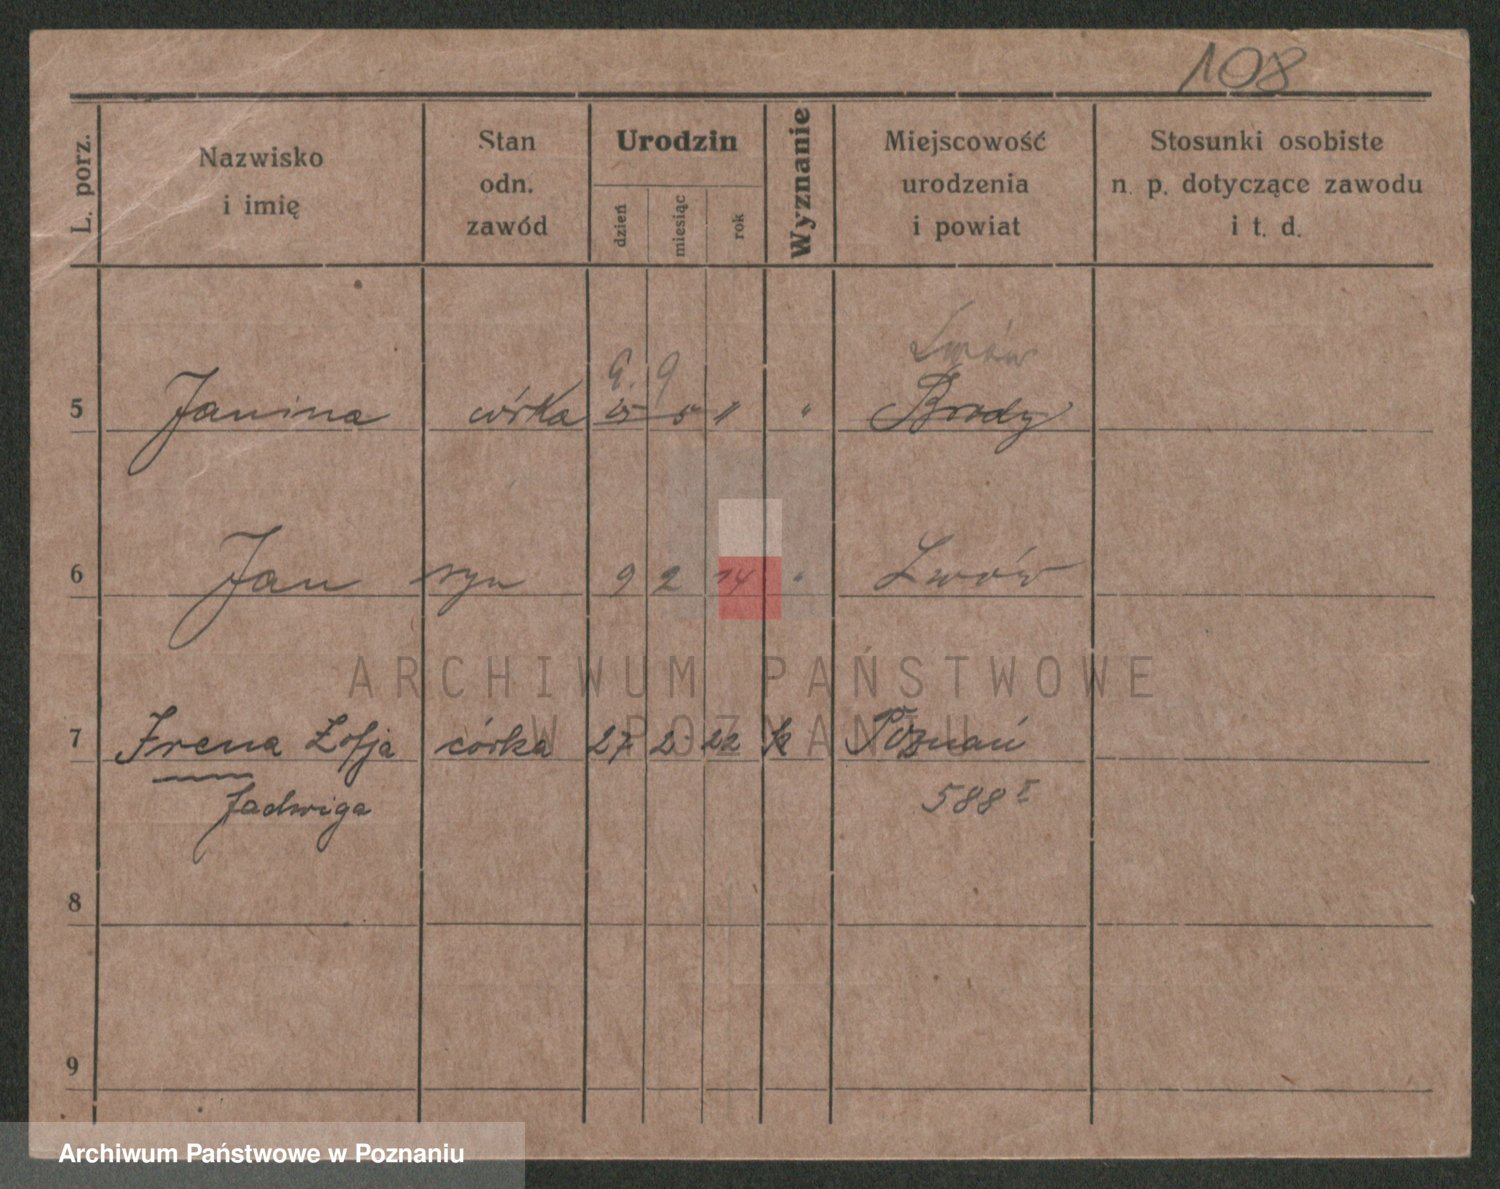 108
L. porz.
Nazwisko
i imię
Stan
odn.
zawód
Urodzin
dzień
miesiąc
rok
Wyznanie
Miejscowość
urodzenia
i powiat
Stosunki osobiste
n. p. dotyczące zawodu
i t. d.
Lwów
9
5 Janina córka 25 5 11 " Brody
6 Jan syn 9 2 14 " Lwów
ARCHIWUM PAŃSTWOWE
W POZNANIU
7 Irena Zofja córka 27. 2. 22 k Poznań
Jadwiga 588 I
8
9
Archiwum Państwowe w Poznaniu